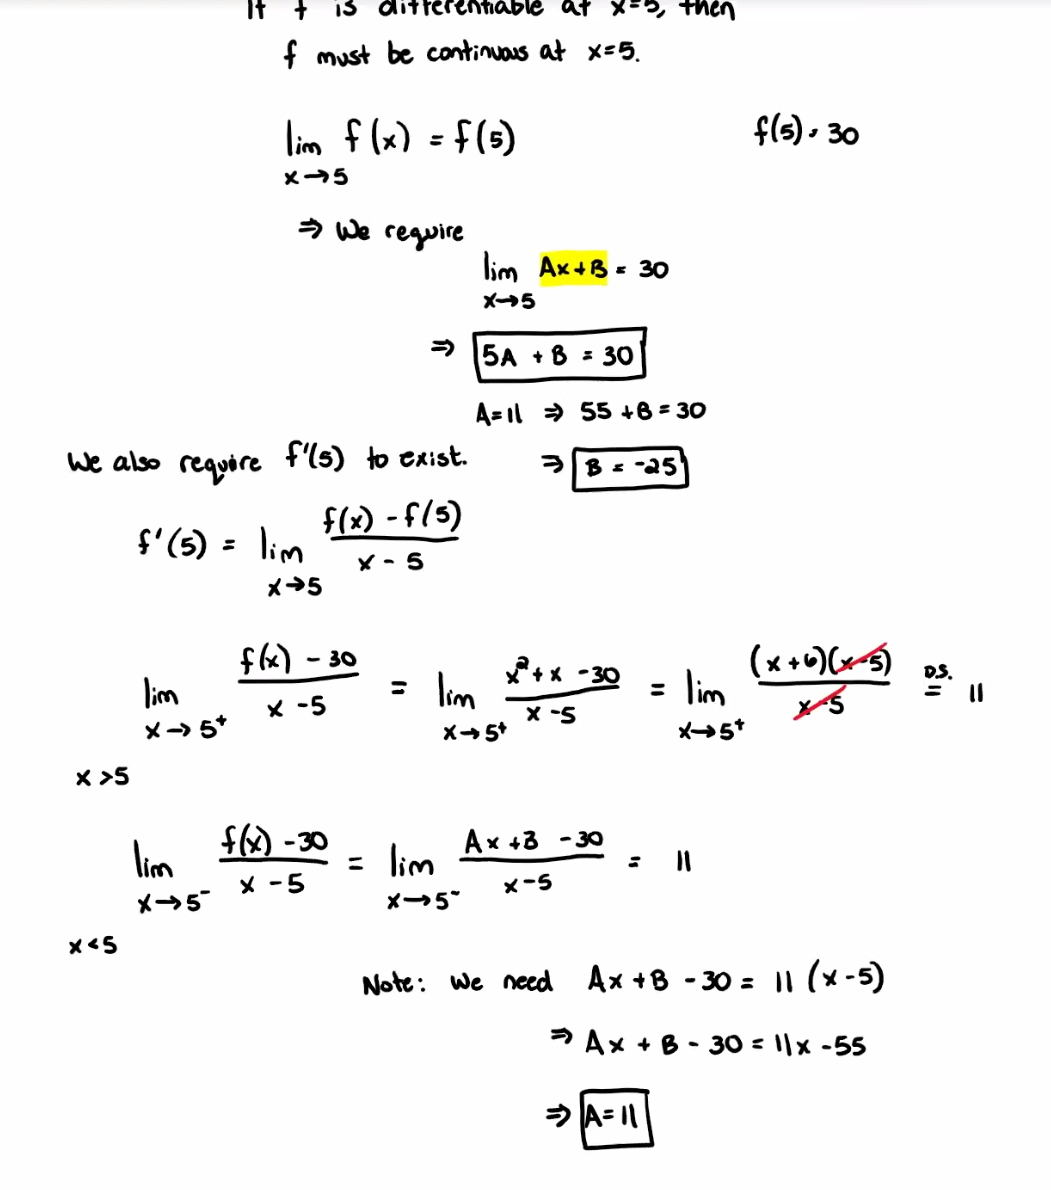 If f is differentiable at x=5, then
f must be continuous at x=5.
lim f(x) = f(5)
x→5
f(5) = 30
⇒ We require
lim Ax+B = 30
x→5
⇒ 5A + B = 30
A=11 ⇒ 55 +B = 30
⇒ B = -25
We also require f'(5) to exist.
f'(5) = lim f(x) - f(5) / x - 5
x→5
lim f(x) - 30 / x - 5 = lim x² + x - 30 / x - 5 = lim (x+6)(x-5) / x-5 D.S. = 11
x→5⁺ x→5⁺ x→5⁺
x >5
lim f(x) - 30 / x - 5 = lim Ax +B - 30 / x-5 = 11
x→5⁻ x→5⁻
x<5
Note: We need Ax +B - 30 = 11 (x-5)
⇒ Ax + B - 30 = 11x - 55
⇒ A= 11